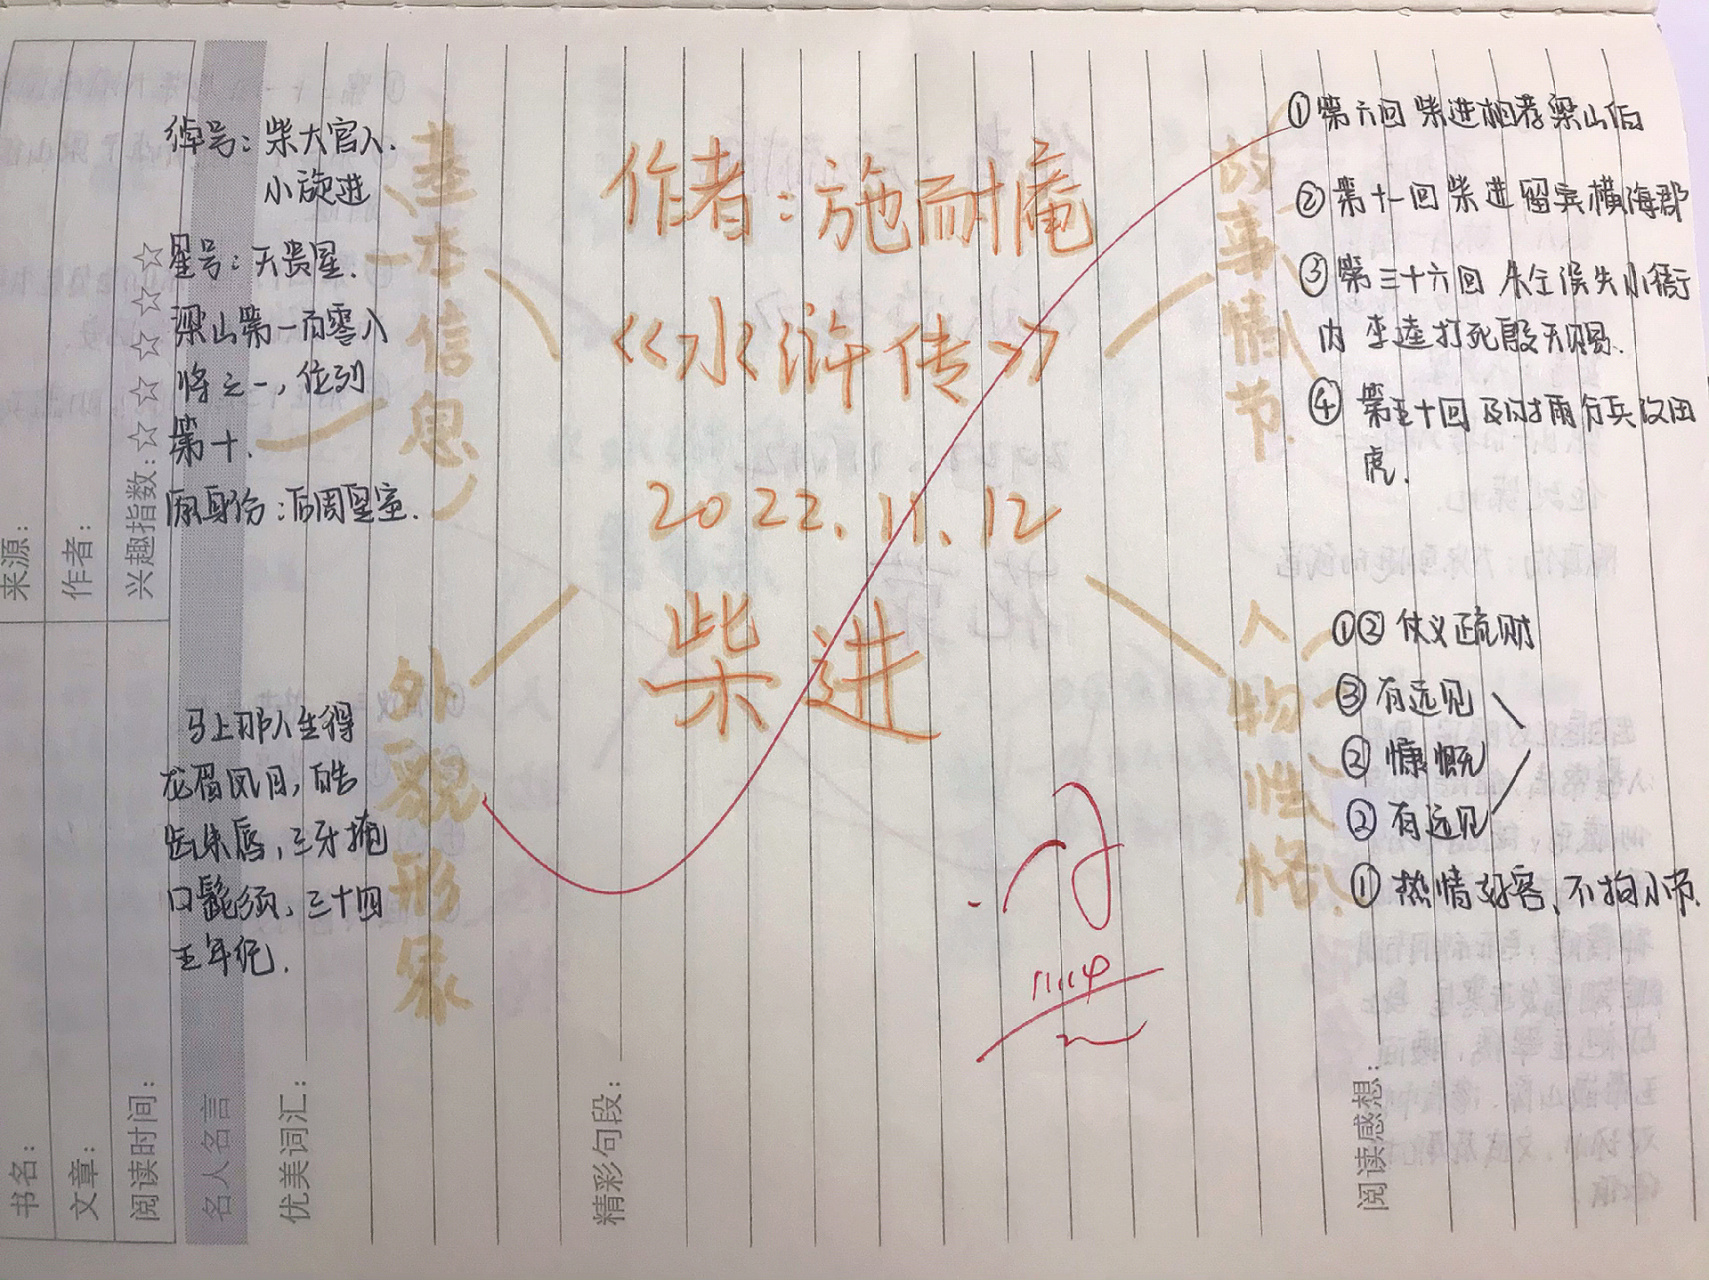 作者:施耐庵
《水浒传》
2022.11.12
柴进
基本信息
绰号:柴大官人.
小旋进
星号:天贵星.
梁山第一百零八
将之一,位列
第十.
原身份:后周皇室.
外貌形象
马上那人生得
龙眉凤目,皓
齿朱唇,三牙掩
口髭须,三十四
五年纪.
故事情节.
①第六回 柴进相荐梁山伯
②第十一回 柴进留宾横海郡
③第三十六回 朱仝误失小衙
内 李逵打死殷天锡.
④第五十回 及时雨分兵攻田
虎.
人物性格.
①②仗义疏财
③有远见
②慷慨
②有远见
①热情好客、不拘小节.
11.14
来源:
作者:
兴趣指数:☆☆☆☆☆
书名:
文章:
阅读时间:
名人名言
优美词汇:
精彩句段:
阅读感想: